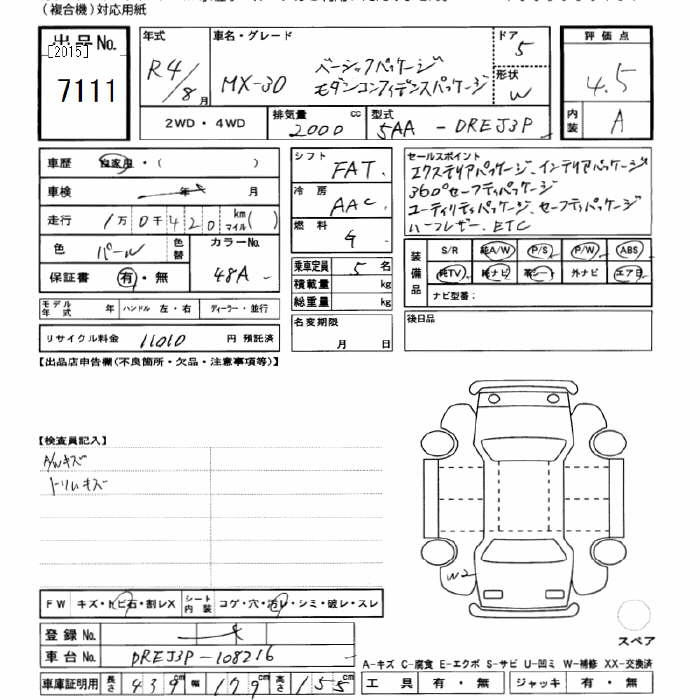 (複合機)対応用紙
出品No.
[2015]
7111
年式
R4/8月
車名・グレード
MX-30
ベーシックパッケージ
モダンコンフィデンスパッケージ
ドア
5
形状
W
評価点
4.5
内装
A
2WD・4WD
排気量
2000 cc
型式
5AA - DREJ3P
車歴 自家用・( )
車検 年 月
走行 1万0千420 km マイル( )
色 パール 色替 カラーNo. 48A
保証書 有・無
モデル年式 年 ハンドル 左・右 ディーラー・並行
リサイクル料金 11010 円 預託済
シフト FAT
冷房 AAC
燃料 G
乗車定員 5名
積載量 kg
総重量 kg
名変期限
月 日
セールスポイント
エクステリアパッケージ、インテリアパッケージ
360°セーフティパッケージ
ユーティリティパッケージ、セーフティパッケージ
ハーフレザー、ETC
装備品
S/R 純A/W P/S P/W ABS
純TV 純ナビ 革シート 外ナビ エアB
ナビ型番:
後日品
【出品店申告欄(不良箇所・欠品・注意事項等)】
【検査員記入】
A/Wキズ
トリムキズ
W2
スペア
FW キズ・トビ石・割レX シート内装 コゲ・穴・汚レ・シミ・破レ・スレ
登録No.
車台No. DREJ3P-108216
車庫証明用 長さ 439cm 幅 179cm 高さ 155cm
A-キズ C-腐食 E-エクボ S-サビ U-凹ミ W-補修 XX-交換済
工具 有・無 ジャッキ 有・無